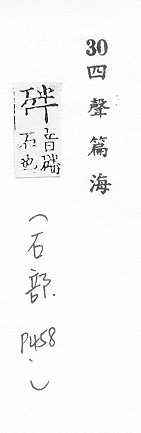 30
四聲篇海
音
石也
(石部.
P458.)